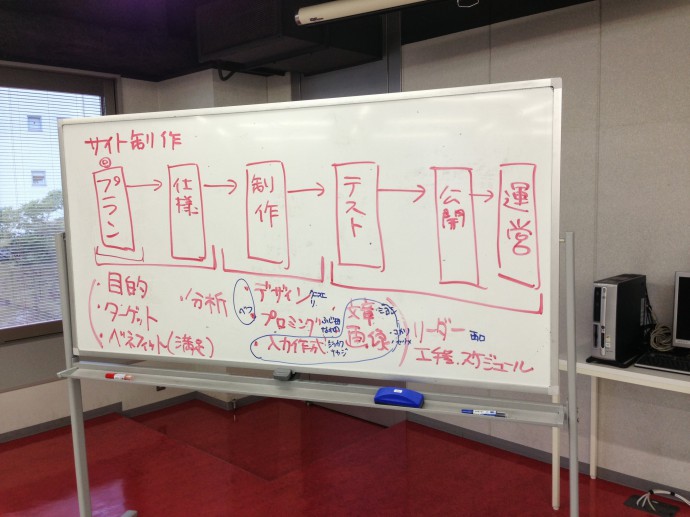 サイト制作
プラン
仕様
制作
テスト
公開
運営
・目的
・ターゲット
・ベネフィット(満足)
分析
・デザイン
・プロミング
・入力作成
文章
画像
リーダー
工程.スケジュール